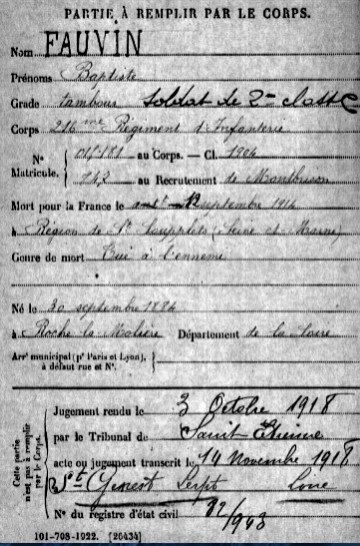 PARTIE À REMPLIR PAR LE CORPS.
Nom FAUVIN
Prénoms Baptiste
Grade tambour soldat de 2me classe
Corps 216me Régiment d'Infanterie
N° Matricule. { 015181 au Corps. — Cl. 1904
au Recrutement de Montbrison
Mort pour la France le 12 septembre 1914
à Région de St Soupplets (Seine et Marne)
Genre de mort Tué à l'ennemi
Né le 30 septembre 1884
à Roche la Molière Département de la Loire
Arrt municipal (pr Paris et Lyon), à défaut rue et N°. }
Cette partie n'est pas à remplir par le Corps.
Jugement rendu le 3 Octobre 1918
par le Tribunal de Saint Etienne
acte ou jugement transcrit le 14 Novembre 1918
St Genest Lerpt Loire
N° du registre d'état civil 82/943
101-708-1922. [26434]